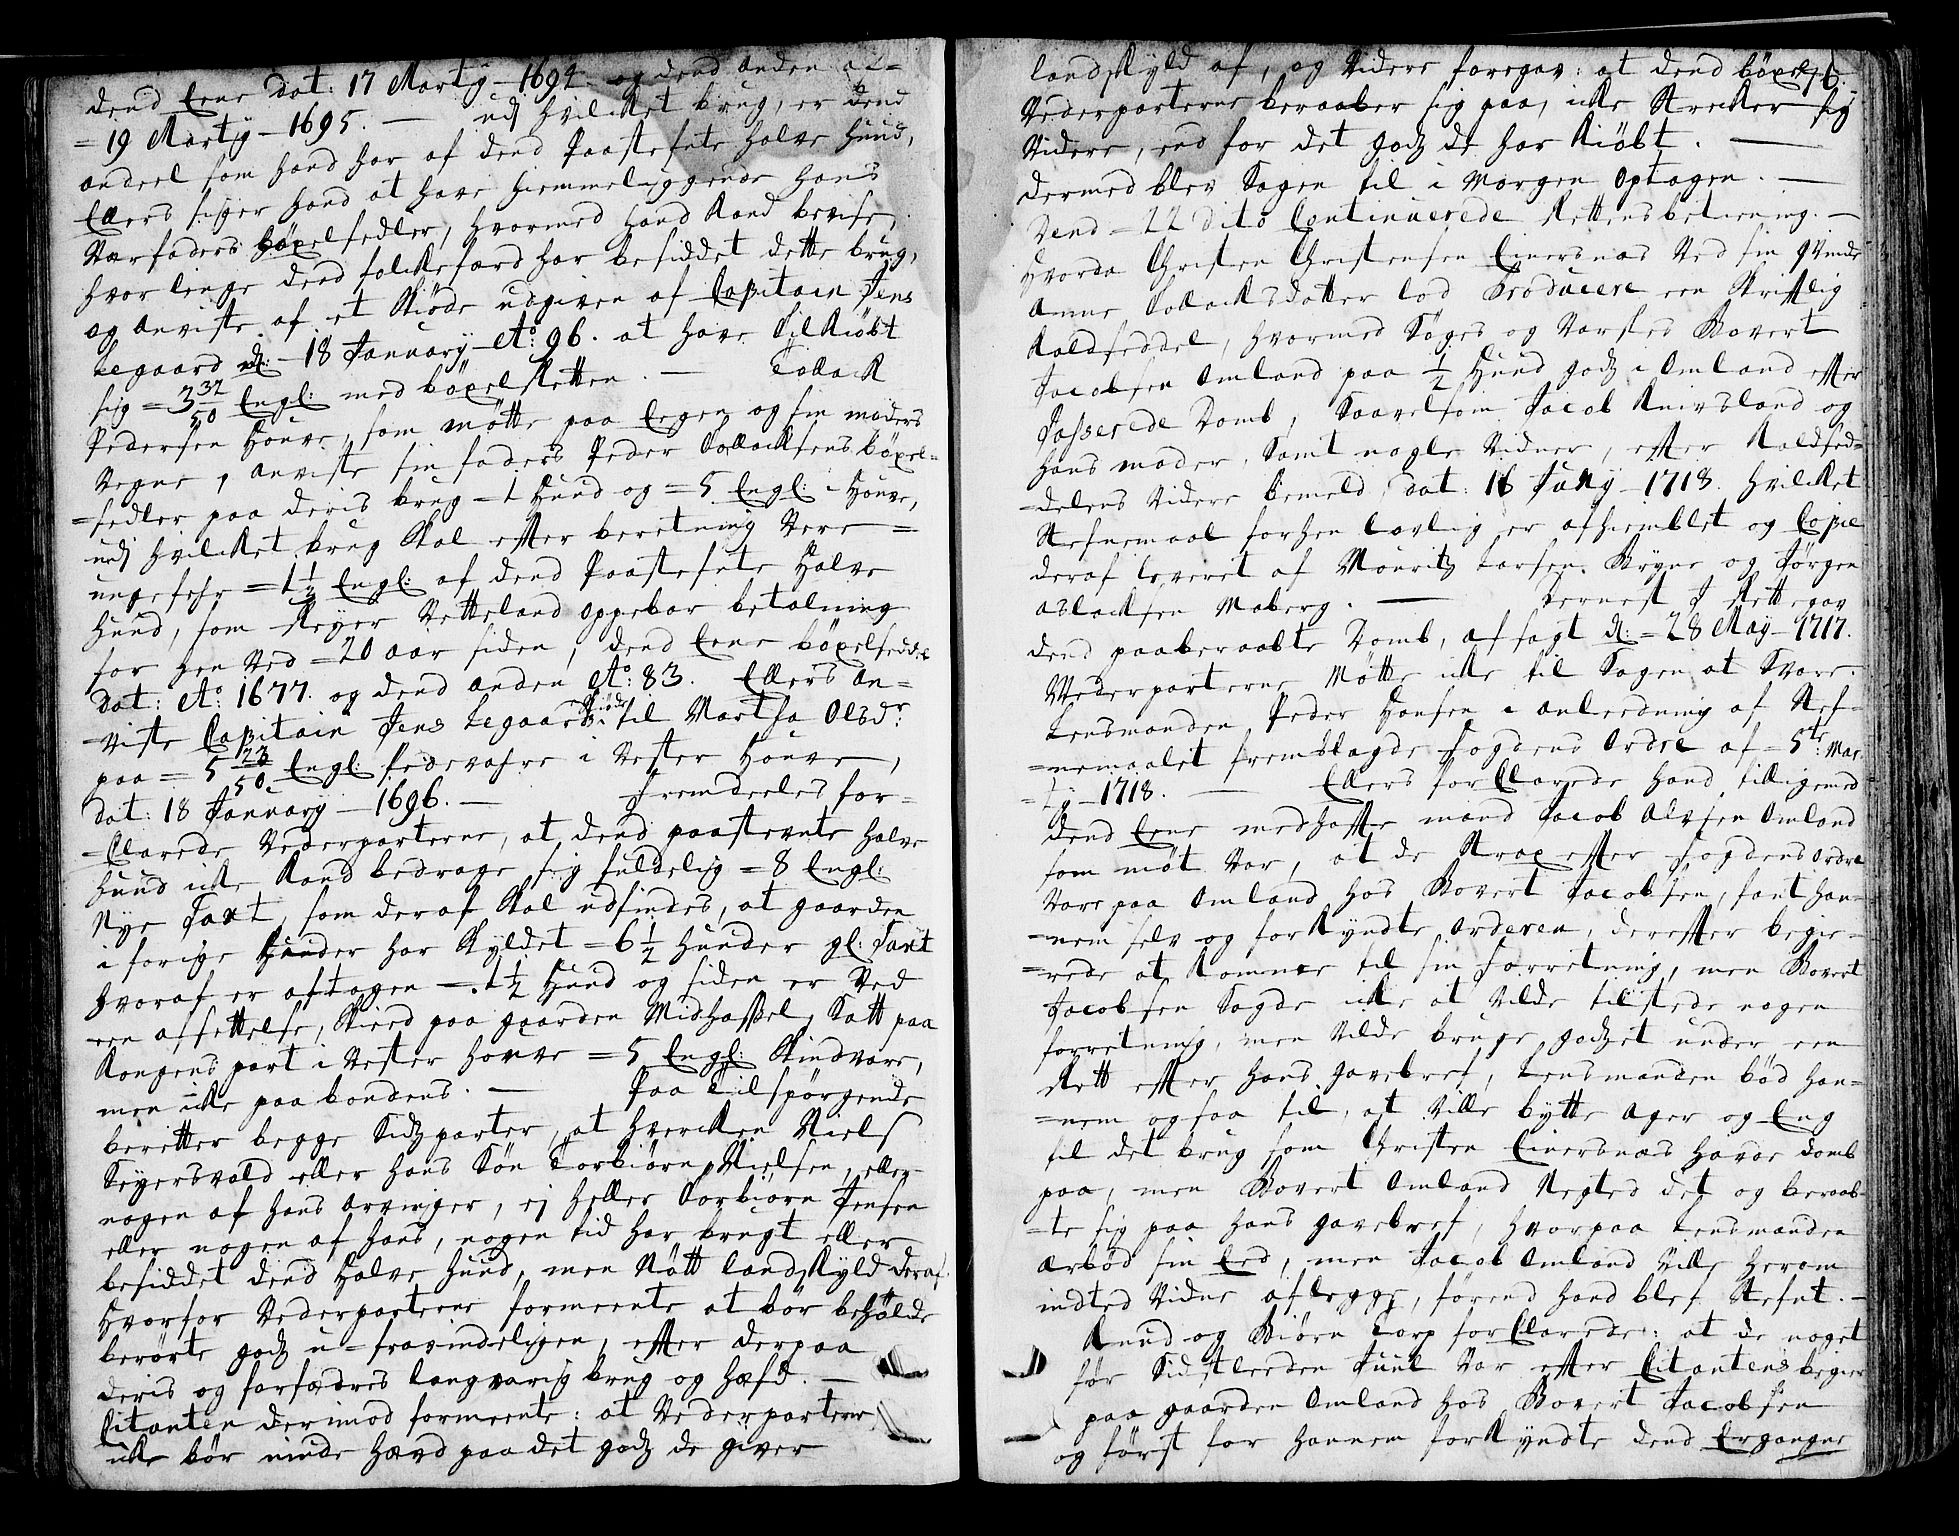 dend Eene dat: 17 Marty – 1694 og dend anden af=
= 19 Marty – 1695. — udj hvilcket brug, er dend
andeel som hand har af dend Paastefnte halve Hund,
Ellers siger hand at have hiemmeliggende hans
Værfaders böxelsedler, hvormed hand kand bevise,
hvor lenge dend folckefærd har besiddet dette brug,
og anviste af et Skiöde udgiven af Capitain Jens
Legaard d: 18 January Ao: 96. at have Tilkiöbt
sig = 3 32/50 Engl: med böxel Retten. — Tollack
Pedersen Houve, som mötte paa Egen og sin moders
Vegne, anviste sin faders Peder Tollacksens böxel=
=sedler paa deris brug – 1 Hund og = 5 Engl: i Houve,
udj hvilcket brug Skal efter beretning Vere =
ungefehr = 1 1/2 Engl: af dend Paastefnte Halve
Hund, som Reyer Vetteland oppebar betalning
for hen Ved = 20 aar siden, dend Eene böxelseddel
dat: Ao: 1677. og dend anden Ao: 83. Ellers an=
=viste Capitain Jens Legaards Skiöde til Martha Olsdr:
paa = 5 23/50 Engl: i Vester Houve,
dat: 18 January – 1696. — Fremdeeles for=
=Clarede Vederparterne, at dend paastevnte halve
hund icke kand bedrage sig fuldelig = 8 Engl:
Nye Taxt, som deraf Skal udfindes, at gaarden
i forige Hunder har Skyldet = 6 1/2 Hunder gl: Taxt
hvoraf er aftagen – 1 1/2 Hund og siden er Ved
een afsettelse, Skeed paa gaarden Midhassel, Satt paa
Kongens part i Vester Houve = 5 Engl: Skindvare,
men icke paa bondens. — Paa Tilspörgende
beretter begge Sidz parter, at hvercken Niels
Seyersvold eller hans Sön Torbiörn Nielsen, eller
nogen af hans arvinger, ej heller Torbiörn Jensen
eller nogen af hans, nogen tid har brugt eller
besiddet dend Halve Hund, men Nött landskyld deraf
Hvorfor Vederparterne formeente at bör beholde
berörte godz u-fravindeligen, efter derpaa
deris og forfædres langvarig brug og Hæfd. —
Citanten derimod formeente: at Vederparterne
icke bör vinde Hævd paa det godz de giver
landskyld af, og Videre foregav: at dend böxel
Vederparterne beraaber sig paa, icke Strecker sig
Videre, end for det godz de har Kiöbt. —
dermed blev Sagen til i Morgen Optagen. —
Dend – 22 dito Continuerede Rettens betiening. —
Hvorda Christen Christensen Einersnæs Ved sin qvinde
Anne Tollacksdatter lod Producere een Skriftlig
Kaldseddel, hvormed Söges og Varsles Bovert
Jacobsen Omland paa 1/2 Hund godz i Omland efter
Passerede Domb, Saavelsom Jacob Knivsland og
hans moder, Samt nogle Vidner, efter Kaldsed=
=delens Videre bemeld, dat: 16 July – 1718. Hvilcket
Stefnemaal forhen lovlig er afhiemblet og Copie
deraf leveret af Mouritz Larsen Bryne og Jörgen
Aslacksen Maberg. — Dernest I Rettegav
dend paaberaabte Domb, afsagt d: = 28 May – 1717.
Wederparterne Mötte icke til Sagen at Svare.
Lensmanden Peder Hansen i anledning af Stef=
=nemaalet fremblagde Fogdens Ordre af = 5te Mar=
=ty – 1718. — Ellers forClarede Hand tilligemed
dend Eene medhafte mand Jacob Alvsen Omland
som möt Var, at de Strax efter Fogdens Ordre
Vare paa Omland hos Bovert Jacobsen, fant han=
=nem selv og forkyndte Orderen, derefter begie=
=rede at komme til sin forretning, men Bovert
Jacobsen Sagde icke at Vilde tilstede nogen
forretning, men Vilde bruge godzet under een
Rett efter hans gavebref, Lensmanden böd han=
=nem ogsaa til, at Ville bytte Ager og Eng
til det brug som Christen Einersnæs Havde domb
paa, men Bovert Omland Negted det og beraab=
=te sig paa hans gavebref, hvorpaa Lensmanden
Ærböd sin Eed, men Jacob Omland Ville herom
indted Vidne aflegge, förend hand blef Stefnt. —
Knud og Biörn Torp forClarede: at de noget
för Sidstleeden Juul Var efter Citantens begier
paa gaarden Omland hos Bovert Jacobsen
og först for hannem forkyndte dend Ergangne